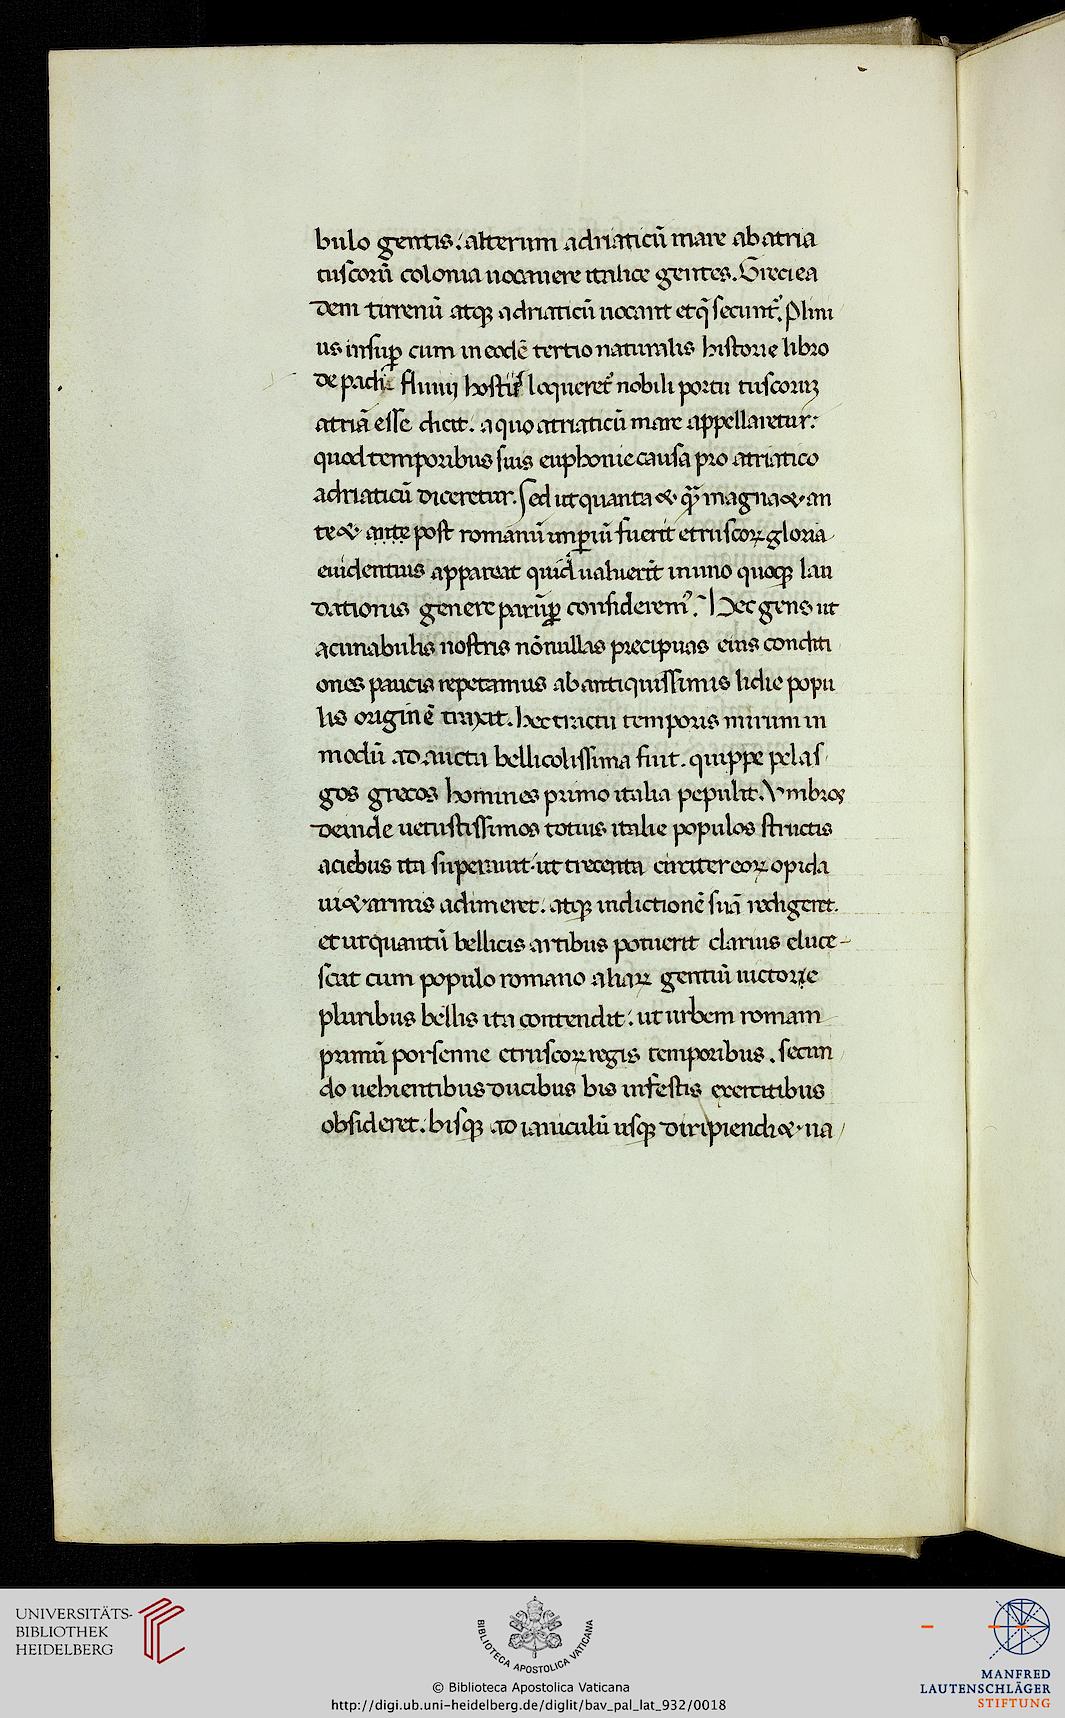 bulo gentis. alterum adriaticū mare ab atria
tuscorū colonia uocauere italice gentes. Greci ea
dem tirrenū atqꝫ adriaticū uocant et q̄ secunt̃. Plini
us insup̱ cum in eodē tertio naturalis historie libro
de padi fluuij hostijs loqueret̃ nobili portu tuscorum
atriā esse dicit. a quo atriaticū mare appellaretur:
quod temporibus suis euphonie causa pro atriatico
adriaticū diceretur. Sed ut quanta & quã magna & an
te & ante post romanū imperiū fuerit etruscoꝝ gloria
euidentius appareat quid ualuerit in uno quoqꝫ lau
dationis genere parūp̱ considerem⁹. Hec gens ut
acunabulis nostris nōnullas precipuas eius conditi
ones paucis repetamus ab antiquissimis lidie popu
lis originē traxit. hec tractu temporis mirum in
modū ad aucta bellicolissima fuit. quippe pelas
gos grecos homines primo italia pepulit. Vmbros
deinde uetustissimos totius italie populos structis
aciebus ita superauit. ut trecenta circiter eoꝝ opida
ui & armis adimeret. atqꝫ indictionē suā redigeret.
et ut quantū bellicis artibus potuerit clarius eluce-
scat cum populo romano aliaꝝ gentiū uictorie
pluribus bellis ita contendit. ut urbem romam
primū porsenne etruscoꝝ regis temporibus. secun
do uehientibus ducibus bis infestis exercitibus
obsideret. bisqꝫ ad ianiculū usqꝫ diripiendi & ua
UNIVERSITÄTS-
BIBLIOTHEK
HEIDELBERG
BIBLIOTECA APOSTOLICA VATICANA
© Biblioteca Apostolica Vaticana
http://digi.ub.uni-heidelberg.de/diglit/bav_pal_lat_932/0018
MANFRED
LAUTENSCHLÄGER
STIFTUNG